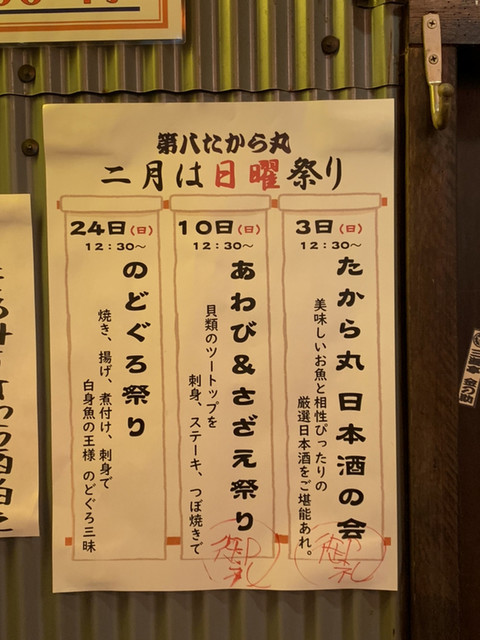 第八たから丸
二月は日曜祭り
3日(日)
12:30〜
たから丸 日本酒の会
美味しいお魚と相性ぴったりの
厳選日本酒をご堪能あれ。
御礼
10日(日)
12:30〜
あわび&さざえ祭り
貝類のツートップを
刺身、ステーキ、つぼ焼きで
御礼
24日(日)
12:30〜
のどぐろ祭り
焼き、揚げ、煮付け、刺身で
白身魚の王様 のどぐろ三昧